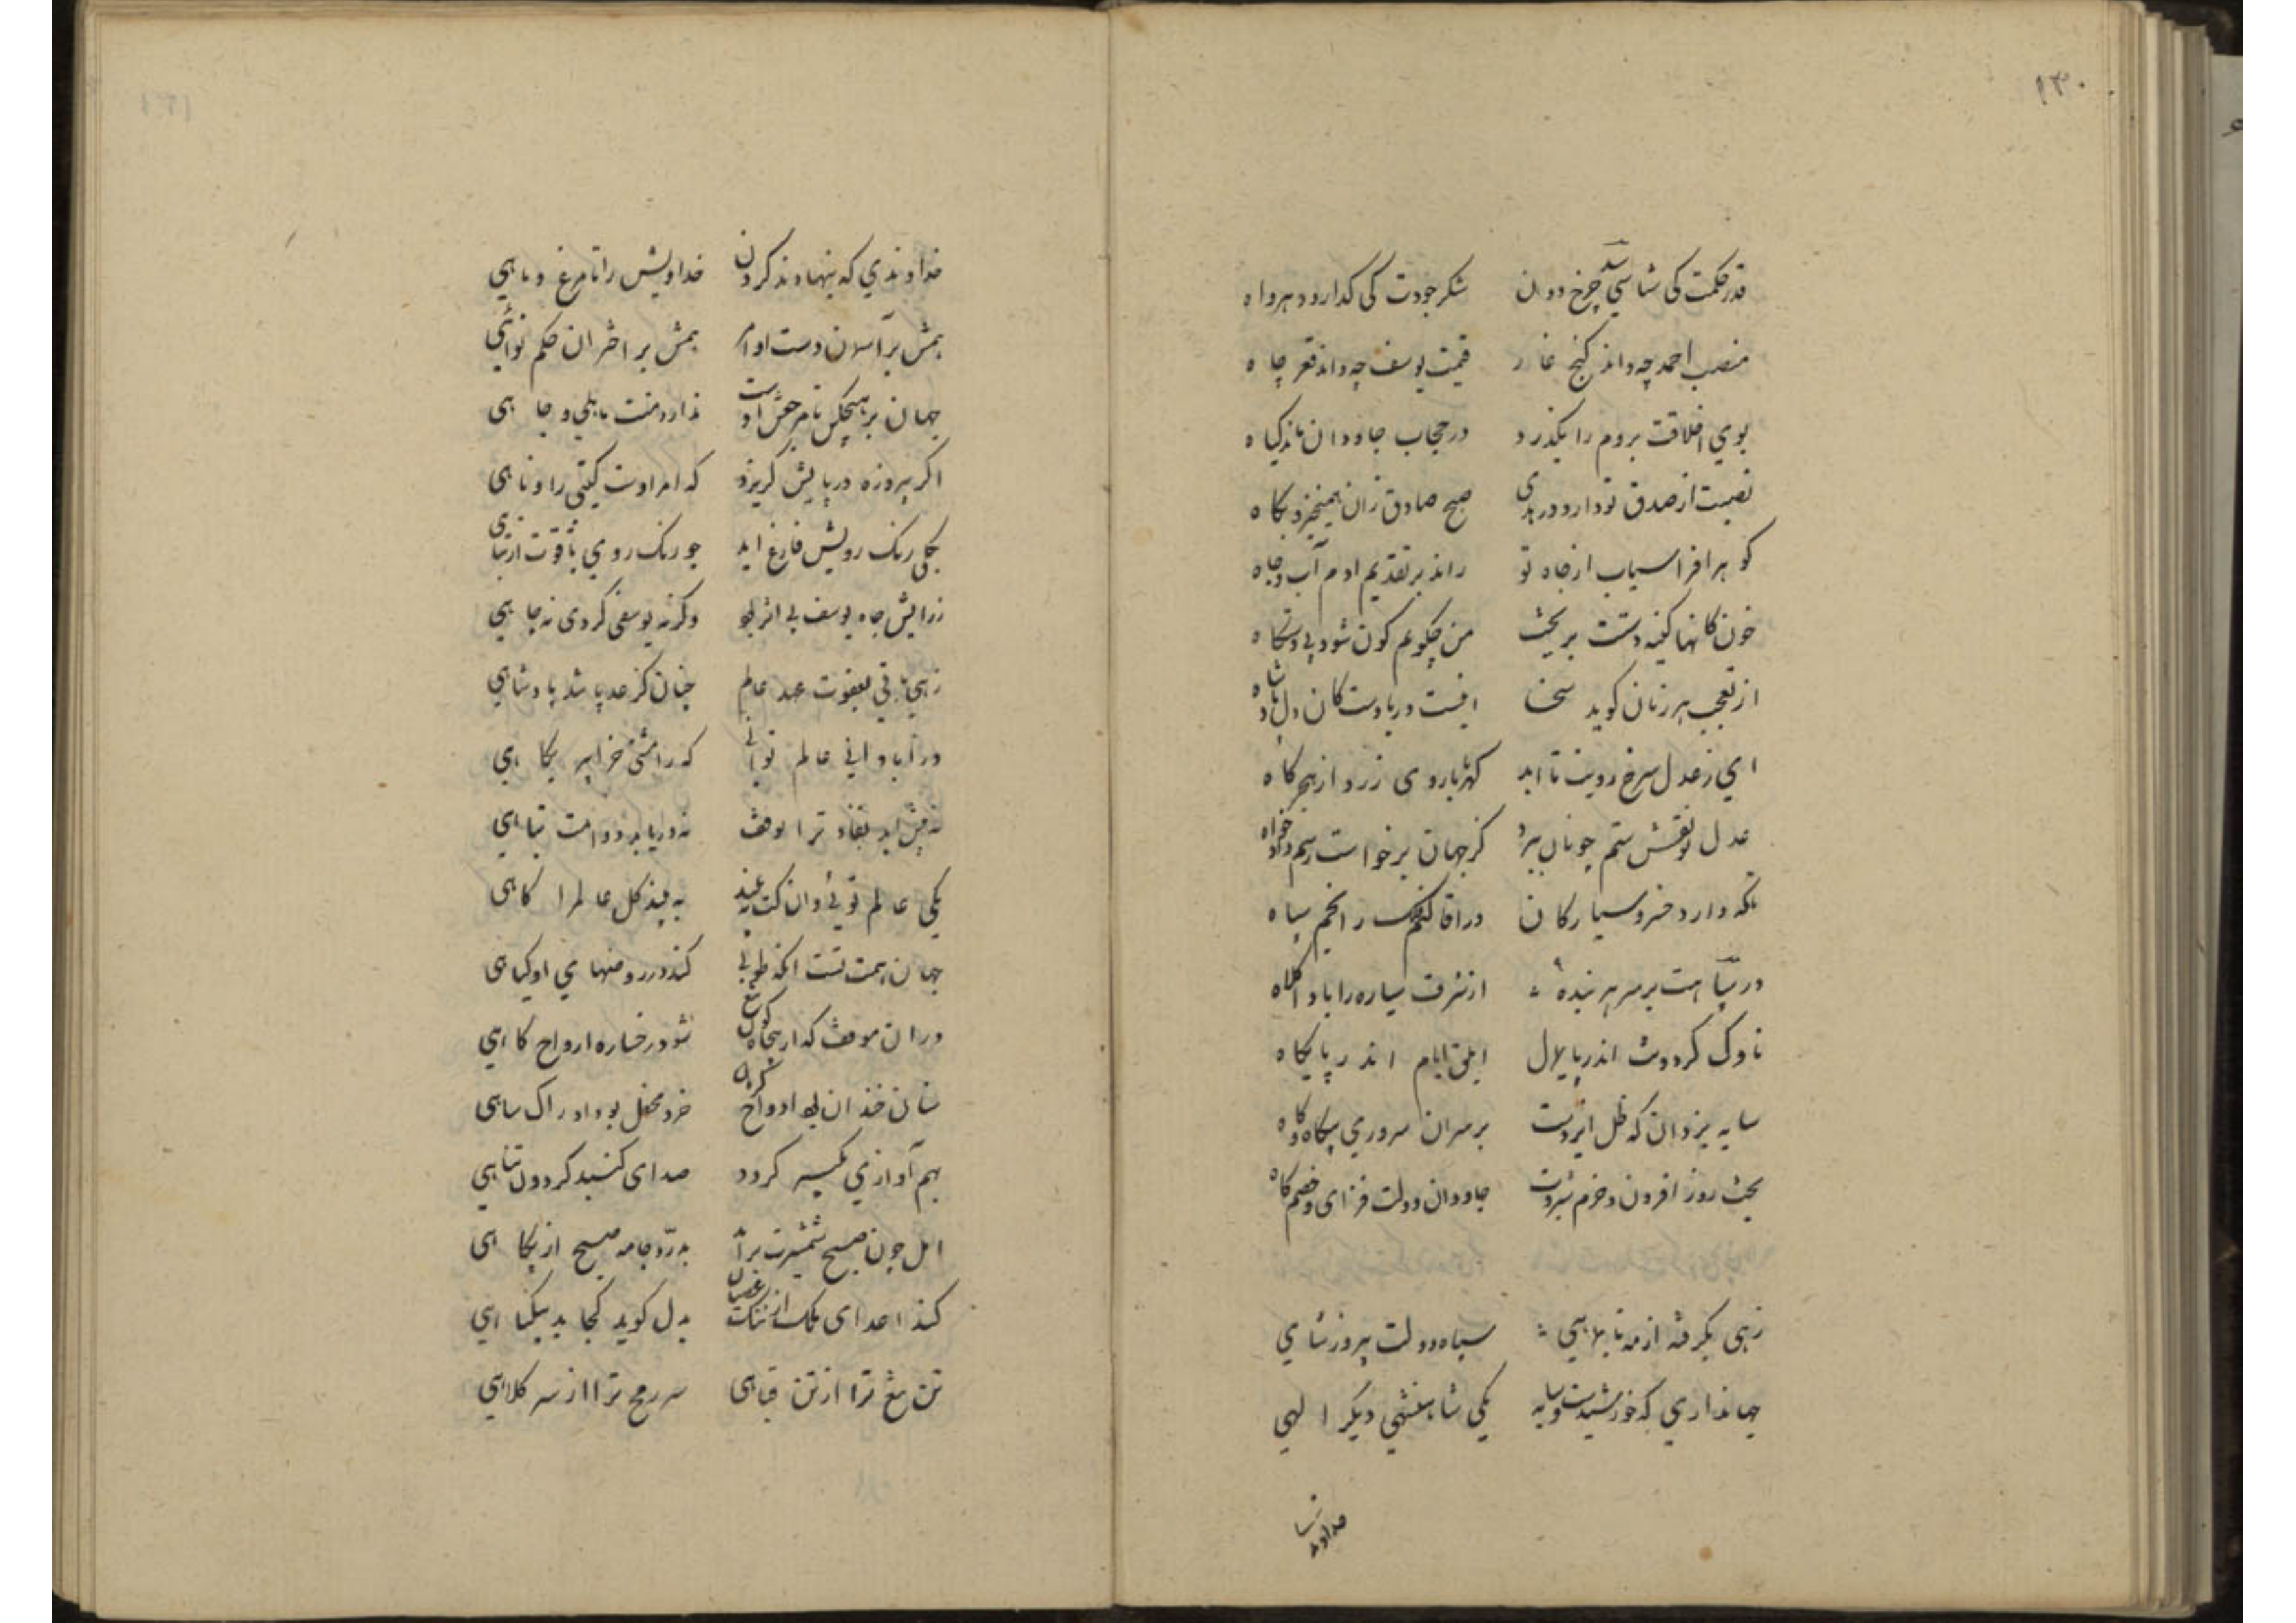 ۱۳۰
قدر حکمت کی شناسی چرخ دون شکر جودت کی کدارد دهر واه
منصب احمد چه داند کنج غار قیمت یوسف چه داند قعر چاه
بوی اخلاقت بروم را بگذرد در حجاب جاودان ماند کیاه
نصیبت از صدق تو دارد صبح صادق زان پکاه
کوهر افراسیاب از جاه تو راند بر تقدیم ادم آب و جاه
خون کانها کینه دستت بریخت من چکویم کون شود بی دستکاه
از تعجب هر زمان کوید سخا اینست دریا دست کان دل پادشاه
ای ز عدل سرخ رویت تا ابد کهربا روی زرد از هجر کاه
عدل تو نقش ستم چونان ببرد کز جهان برخواست رسم دادخواه
تکه دارد خسرو سیارکان در افا کنم را انجم سپاه
در است بر سر هر بنده از شرف سیاره را بادا کلاه
ناوک کردونت اندر پایلال ابلق ایام اندر پایکاه
سایه یزدان که ظل ایزدست بر سران سروری پیکاه و کاه
بخت روز افزون و خرم جاودان دولت فزای و خصم کاه
زهی بگرفته از مه تا بماهی سپاه دولت پیروز شاهی
جهانداری که خورشیدست و سایه یکی شاهنشهی دیکر الهی
خداوندی که بنهادند کردن خداویش را تا مرغ و ماهی
بمش بر آسمان دست اوامر بمش بر اختران حکم نواهی
جهان بر هیچکس تا مرجعش اوست ندارد منت مالی و جاهی
اکر پیروزه در پایش کریزد که امر اوست کیتی را وناهی
بکلی رنک رویش فارغ اید جو رنک روی یاقوت از تباهی
ز رایش جاه یوسف بی اثر بود وکرنه یوسفی کردی نه چاهی
زهی باقی بعفوت عهد عالم چنان کز عدل باشد پادشاهی
در آبادانی عالم توانی که رامشی خرابی بکاهی
نه پیش اید نفاذ ترا توقف نه دریابد دوامت تباهی
یکی عالم تویی و ان کت به بیند به بیند کل عالم را کماهی
جهان همت تست انکه طوبی کند در روضهای او کیاهی
در ان موقف که از شود رخساره ارواح کاهی
سنان خندان بود ارواح کریان خرد مختل بود ادراک ساهی
بهم آوازی تکبیر کردد صدای کنبد کردون تناهی
اجل چون صبح شمشیرت برآید بدرد جامه صبح از پکاهی
کند اعدای ملک از ننک عصیان بدل کوید کجا بد بیکناهی
تن تیغ ترا از تن قباهی سر رمح ترا از سر کلاهی